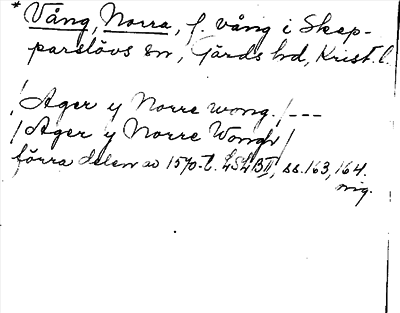 * Vång, Norra, f. vång i Skep-
parslövs sn, Gärds hd, Krist. l.
/Ager y Norre wong./---
/Ager y Norre Wongh/
förra delen av 1570-t. LSLB II, ss. 163, 164.
mg.